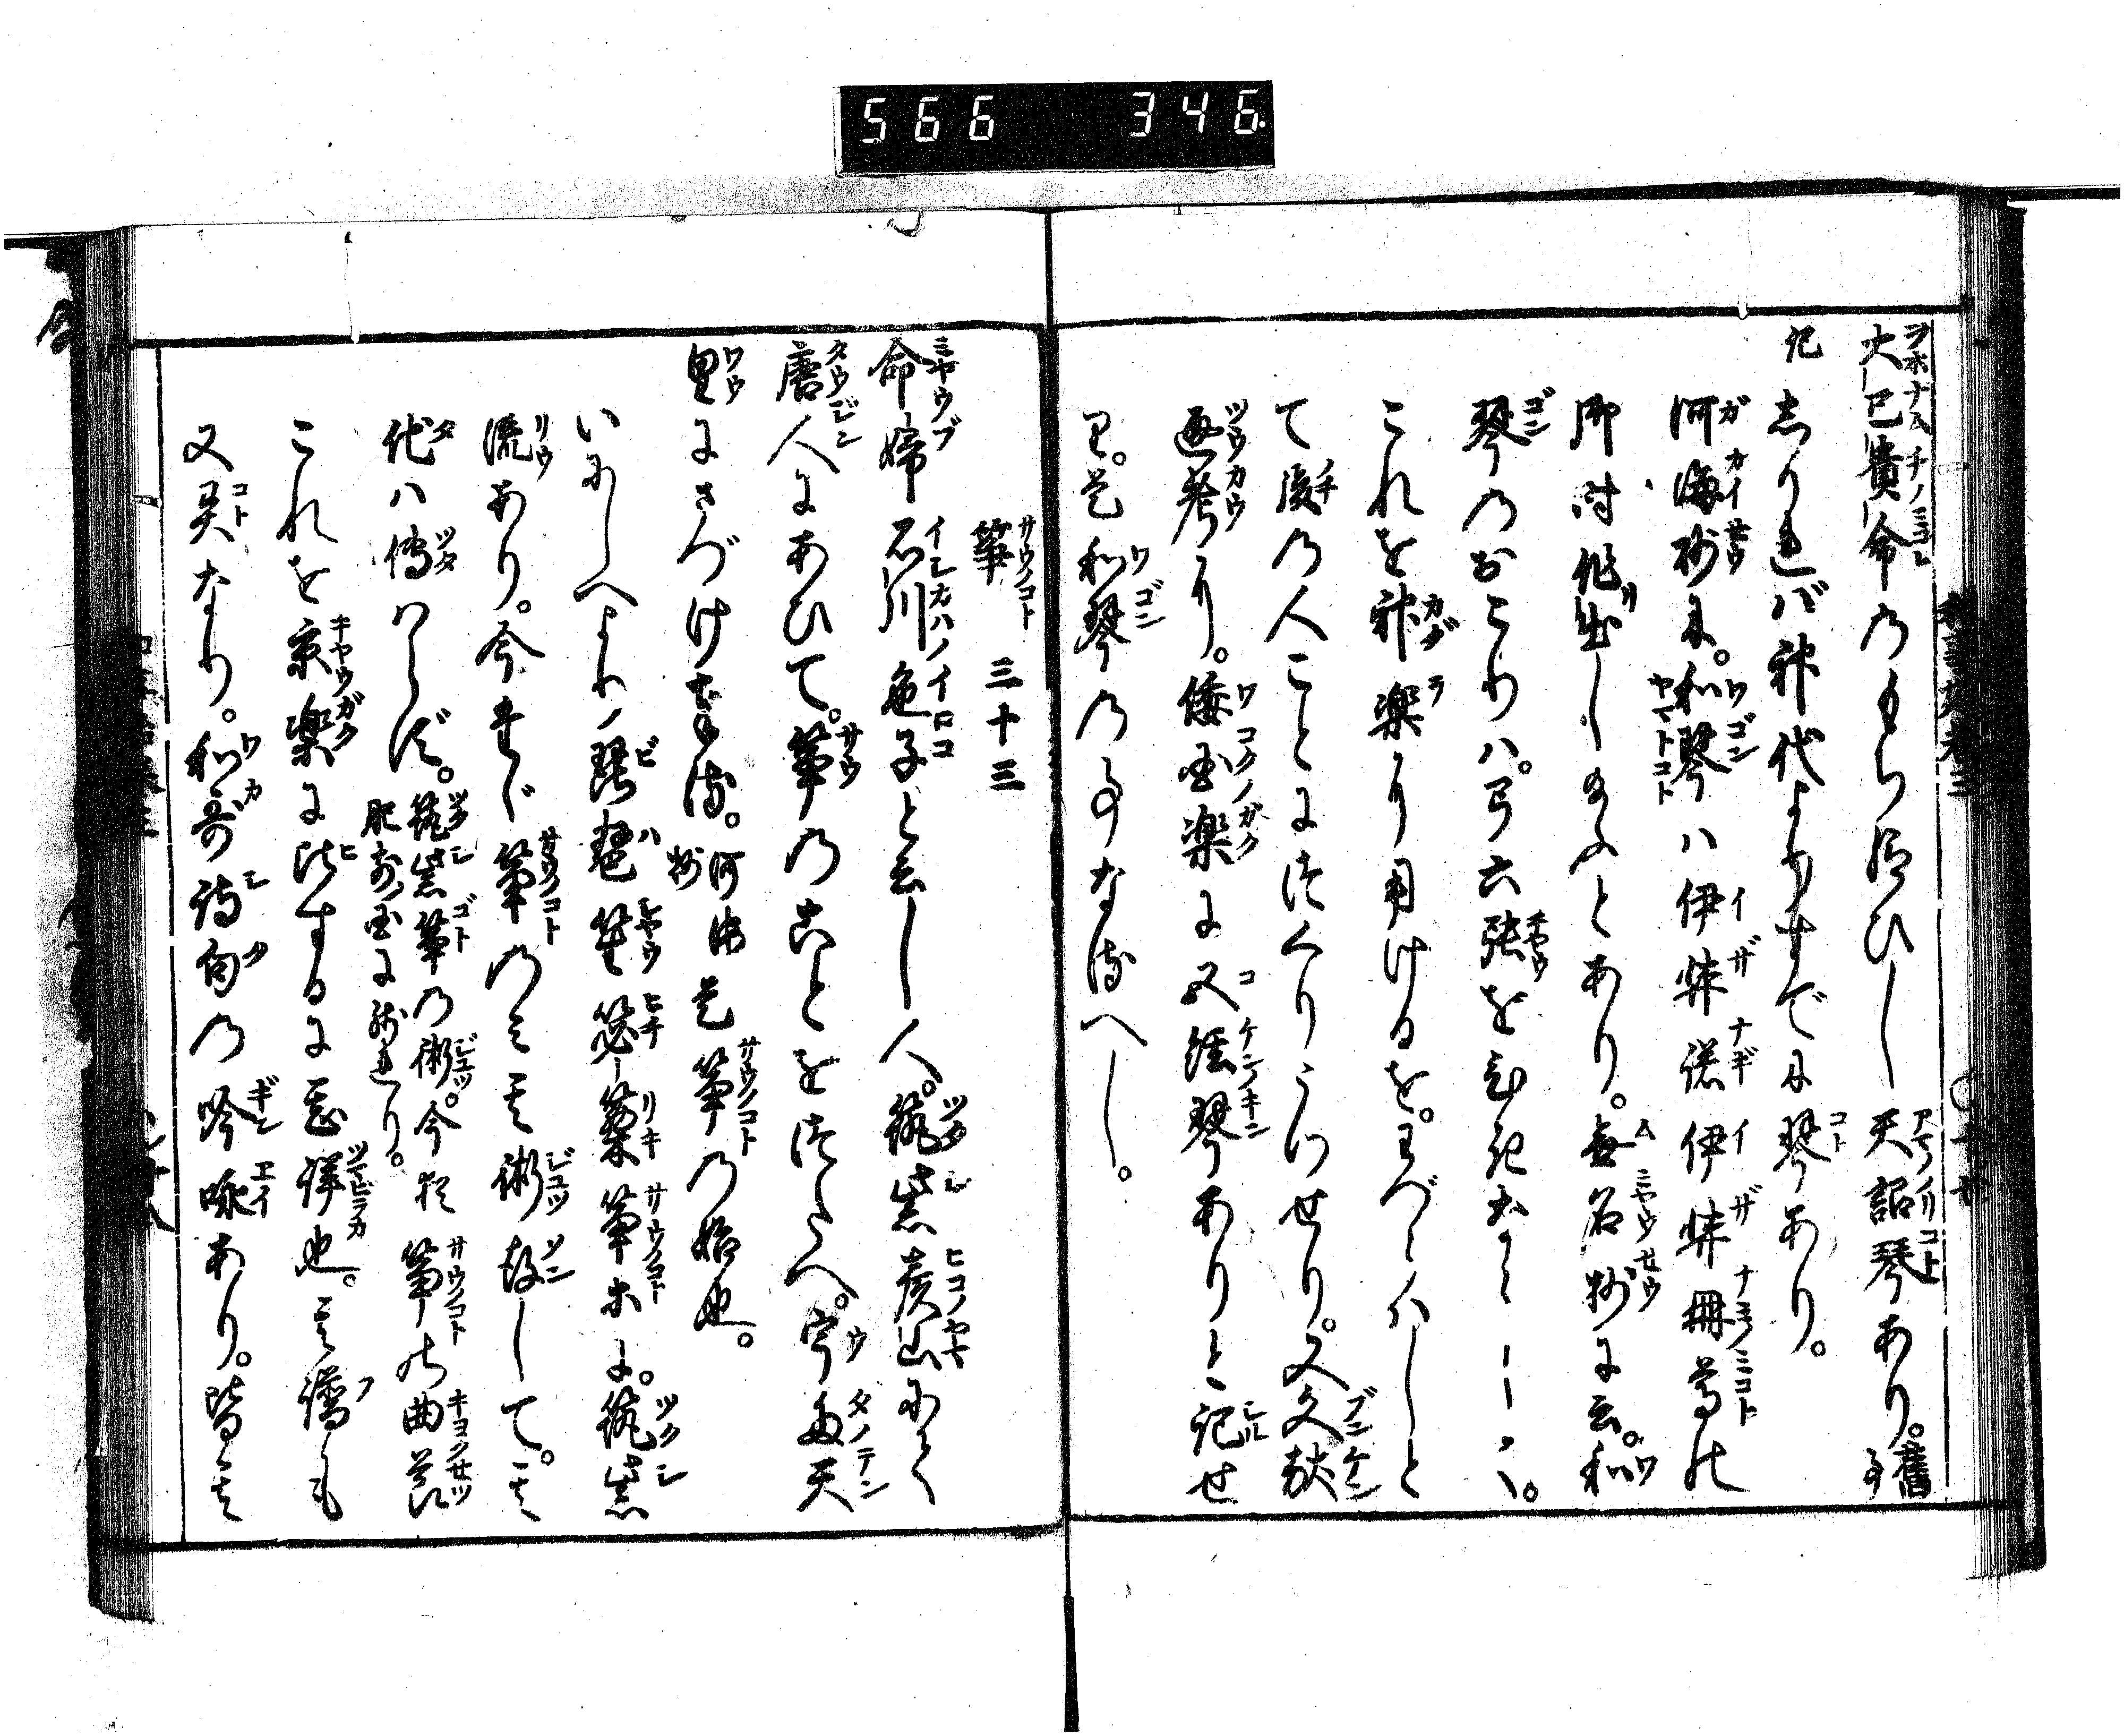 566 346
大己貴命のもち給ひし天詔琴あり。舊事
記しかれバ神代よりすでに琴あり。
河海抄に。和琴ハ伊弉諾伊弉冊尊の
御時作出し給ふとあり。無名抄に云。和
琴のおこりハ。弓六張をひきならして。
これを神楽に用けるを。わづらハしと
て後の人ことにつくりうつせり。又文献
通考に。倭国楽に又絃琴ありと記せ
り。是和琴の事なるへし。
箏 三十三
命婦石川色子と云し人。筑紫彦山にて
唐人にあひて。箏のことをつたへ。宇多天
皇にさづけ奉る。河海抄是箏の始也。
いにしへより琵琶笙篳篥箏等に。筑紫
流あり。今ただ箏のミ其術残して。其
代ハ傳ハらず。筑紫箏の術。今は肥前国に残れり。箏の曲节
これを京楽に比するに甚詳也。其譜も
又異なり。和哥詩句の吟咏あり。皆其